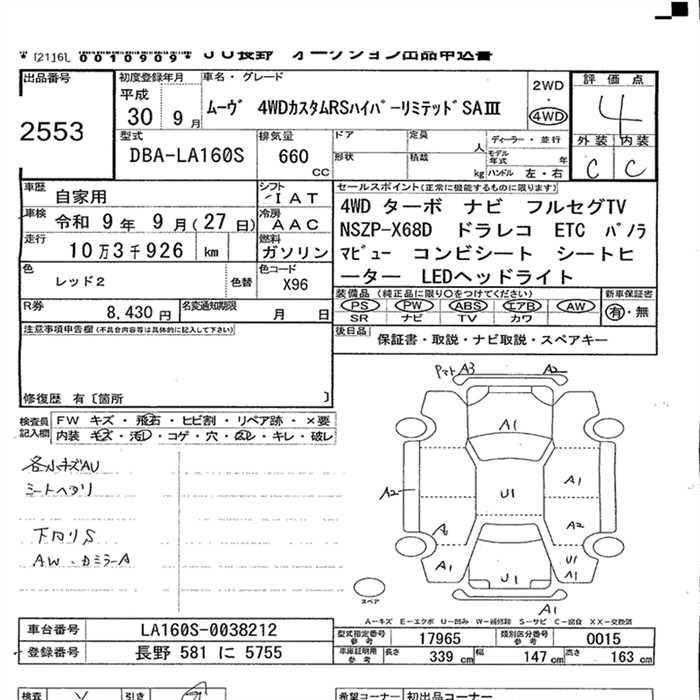 * [21]6[ 0010909* JU長野 オークション出品申込書
出品番号
2553
初度登録年月
平成
30 9月
車名・グレード
ムーヴ 4WDカスタムRSハイパーリミテッドSAⅢ
2WD
・
4WD
評価点
4
外装 内装
C C
型式
DBA-LA160S
排気量
660
CC
ドア
形状
定員
人
積載
kg
ディーラー・並行
モデル年式 年
ハンドル 左・右
車歴
自家用
シフト
IAT
車検
令和 9年 9月(27日)
冷房
AAC
走行
10万3千926 km
燃料
ガソリン
色
レッド2
色替
色コード
X96
R券
8,430円
名変通知期限
月 日
セールスポイント(正常に機能するものに限ります)
4WD ターボ ナビ フルセグTV
NSZP-X68D ドラレコ ETC パノラ
マビュー コンビシート シートヒ
ーター LEDヘッドライト
装備品 (純正品に限り○をつけてください)
PS ・ PW ・ ABS ・ エアB ・ AW
SR ナビ TV カワ
新車保証書
有・無
後日品
保証書・取説・ナビ取説・スペアキー
注意事項申告欄(不具合内容等は具体的に記入して下さい)
修復歴 有〔箇所 〕
検査員記入欄
FW キズ・飛石・ヒビ割・リペア跡・×要
内装 キズ・汚れ・コゲ・穴・スレ・キレ・破レ
各小キズAU
シートヘタリ
下回りS
AW、カミラーA
A3
A2
A1
A2
U1
A1
A2
A1
U1
A1
U1
A1
スペア
A－キズ E－エクボ U－凹み W－補修跡 S－サビ C－腐食 XX－交換済
車台番号 LA160S-0038212
登録番号 長野 581 に 5755
型式指定番号 参考 17965
類別区分番号 参考 0015
車庫証明用 参考 長さ 339 cm 幅 147 cm 高さ 163 cm
検査
引き
希望コーナー
初出品コーナー